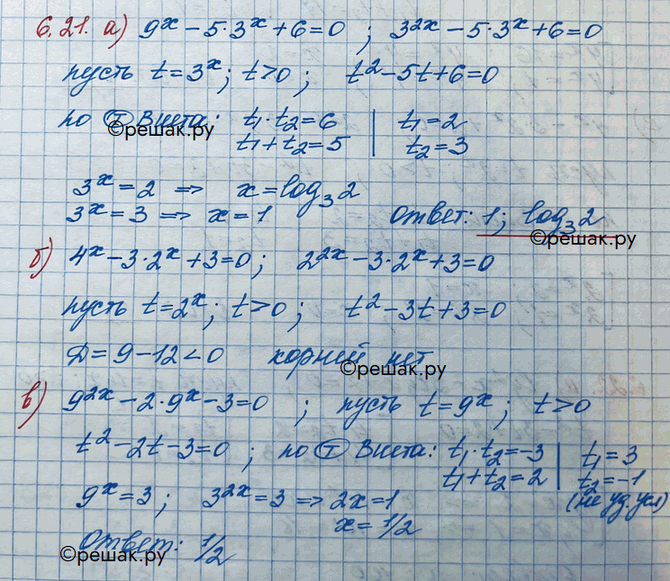 6.21. а) 9^x − 5·3^x + 6 = 0 ; 3^{2x} − 5·3^x + 6 = 0
пусть t = 3^x ; t > 0 ; t² − 5t + 6 = 0
по Ⓣ Виета: t₁·t₂ = 6 | t₁ = 2
©решак.ру t₁ + t₂ = 5 | t₂ = 3
3^x = 2 ⇒ x = log₃ 2
3^x = 3 ⇒ x = 1 Ответ: 1; log₃ 2
©решак.ру
б) 4^x − 3·2^x + 3 = 0 ; 2^{2x} − 3·2^x + 3 = 0
пусть t = 2^x ; t > 0 ; t² − 3t + 3 = 0
D = 9 − 12 < 0 корней нет
©решак.ру
в) 9^{2x} − 2·9^x − 3 = 0 ; пусть t = 9^x ; t > 0
t² − 2t − 3 = 0 ; по Ⓣ Виета: t₁·t₂ = −3 | t₁ = 3
t₁ + t₂ = 2 | t₂ = −1
9^x = 3 ; 3^{2x} = 3 ⇒ 2x = 1 (не уд. усл)
x = 1/2
Ответ: 1/2
©решак.ру